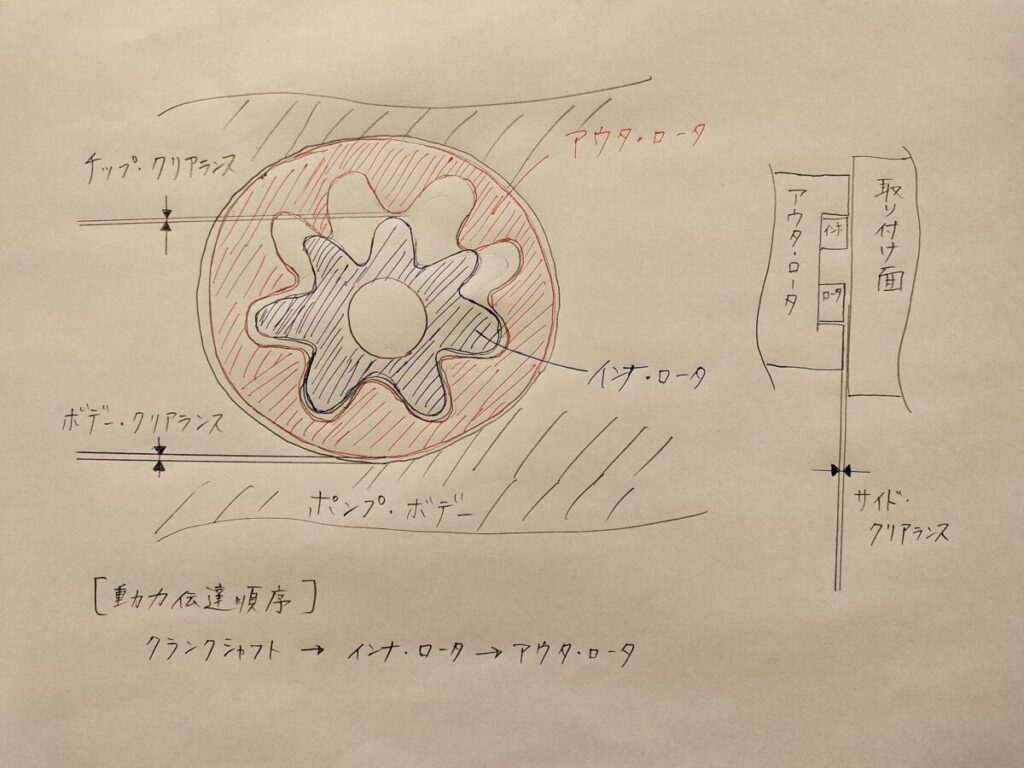 アウタ・ロータ
チップ・クリアランス
インナ・ロータ
ボデー・クリアランス
ポンプ・ボデー
アウタ・ロータ
インナ
ロータ
取り付け面
サイド・
クリアランス
[動力伝達順序]
クランクシャフト → インナ・ロータ → アウタ・ロータ